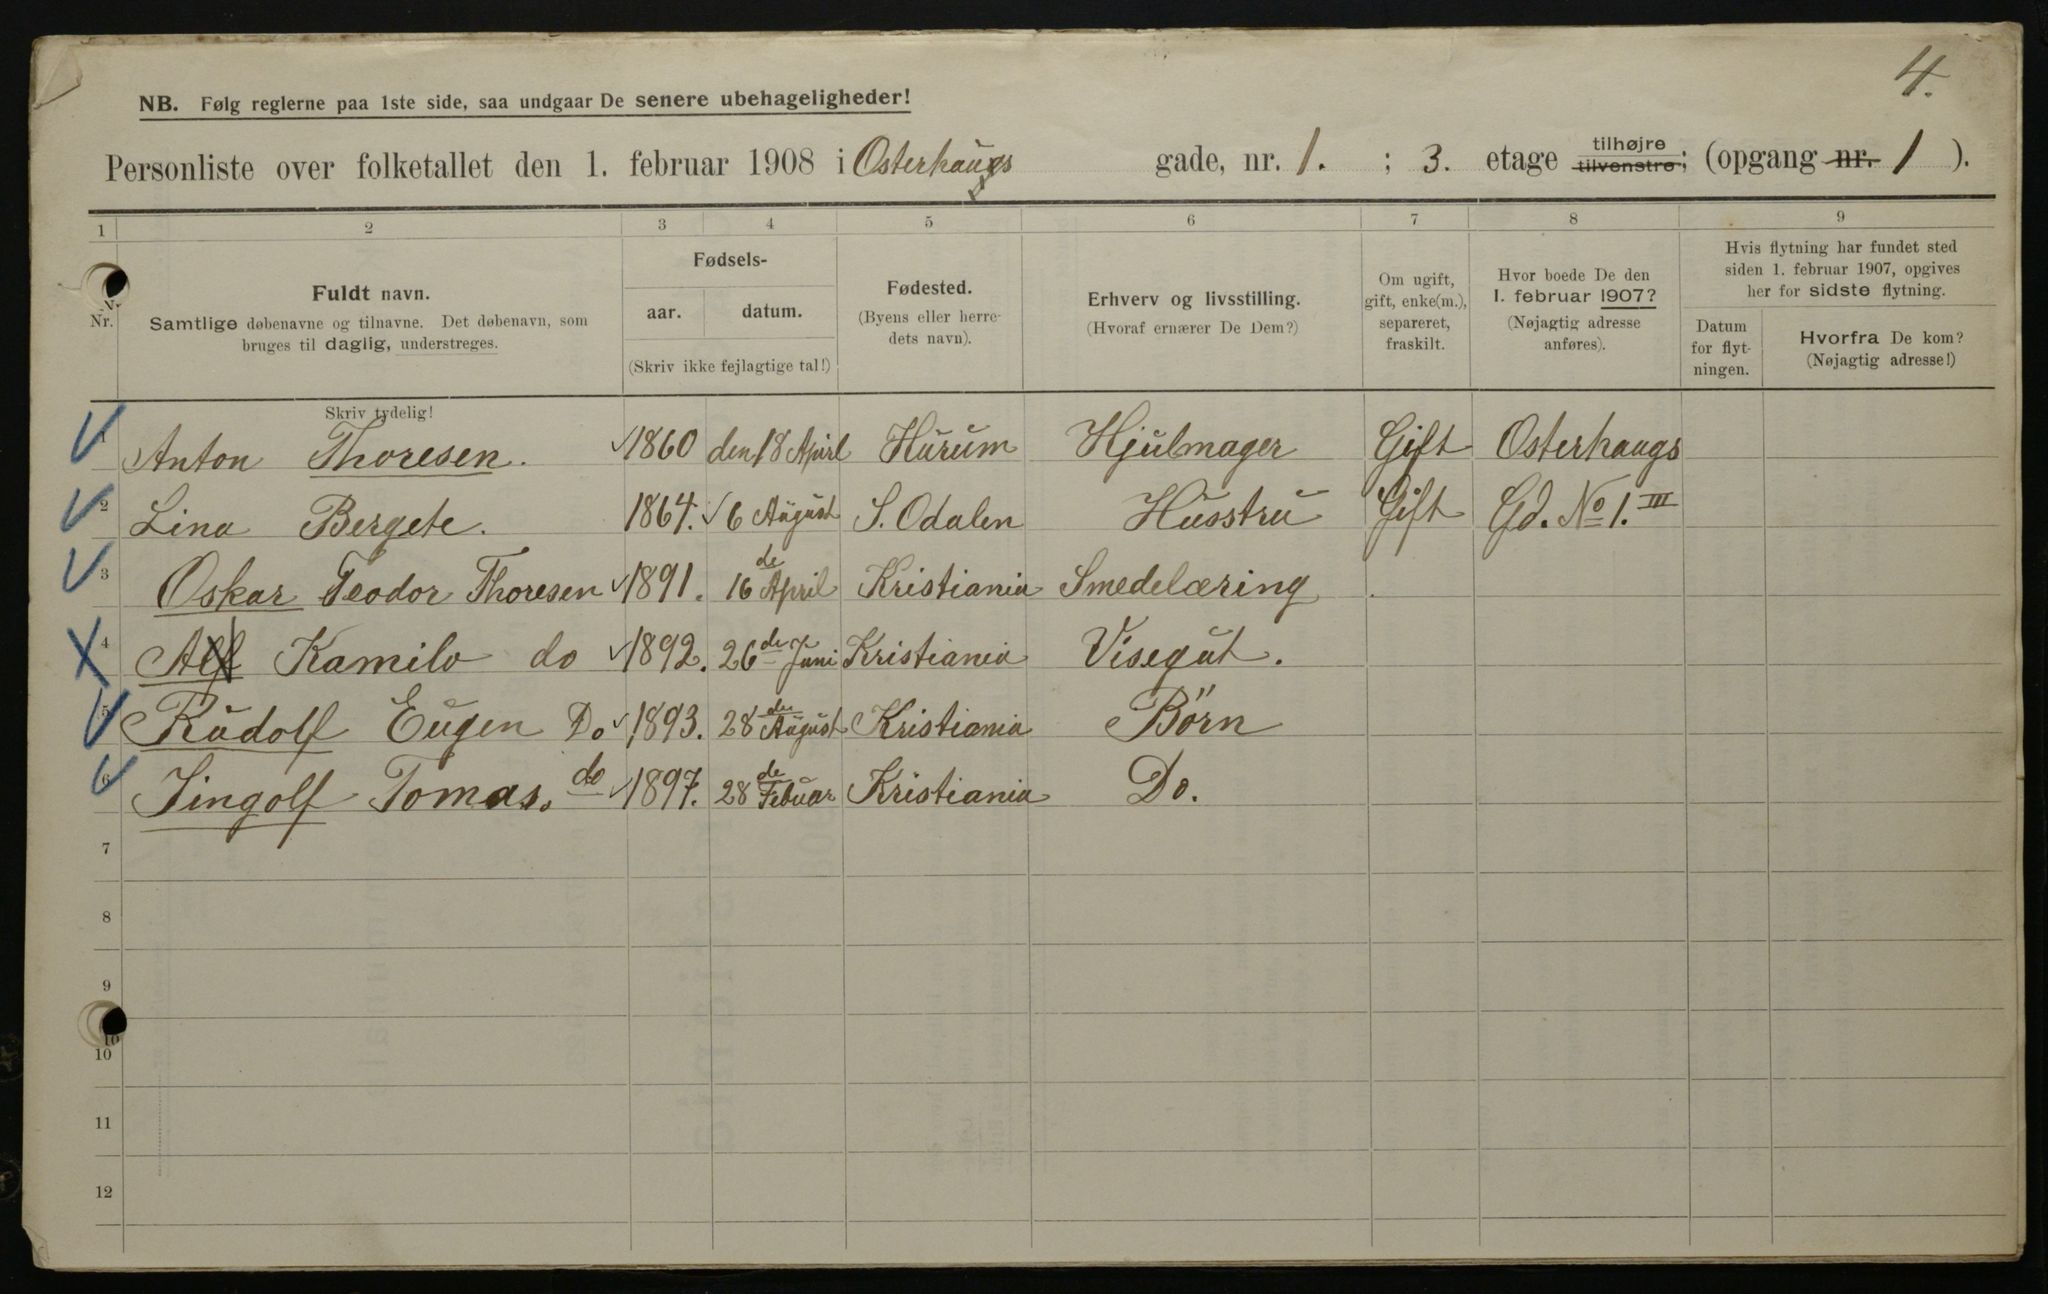 4.
NB. Følg reglerne paa 1ste side, saa undgaar De senere ubehageligheder!
Personliste over folketallet den 1. februar 1908 i Osterhaugs gade, nr. 1. ; 3. etage tilhøjre tilvenstre; (opgang nr. 1 ).
1 2 3 4 5 6 7 8 9
Nr.
Fuldt navn.
Samtlige døbenavne og tilnavne. Det døbenavn, som
bruges til daglig, understreges.
Skriv tydelig!
Fødsels-
aar. datum.
(Skriv ikke fejlagtige tal!)
Fødested.
(Byens eller herre-
dets navn).
Erhverv og livsstilling.
(Hvoraf ernærer De Dem?)
Om ugift,
gift, enke(m.),
separeret,
fraskilt.
Hvor boede De den
1. februar 1907?
(Nøjagtig adresse
anføres).
Hvis flytning har fundet sted
siden 1. februar 1907, opgives
her for sidste flytning.
Datum
for flyt-
ningen.
Hvorfra De kom?
(Nøjagtig adresse!)
1 Anton Thoresen. 1860 den 18 April Hurum Hjulmager Gift Osterhaugs
2 Lina Bergete. 1864. 6 August S. Odalen Husstru Gift Gd. No 1. III
3 Oskar Teodor Thoresen 1891. 16 de April Kristiania Smedelæring
4 Alf Kamilo do 1892. 26 de Juni Kristiania Visegut.
5 Rudolf Eugen Do 1893. 28 de August Kristiania Börn
6 Jingolf Tomas. do 1897. 28 de Febuar Kristiania Do.
7
8
9
10
10
11
12